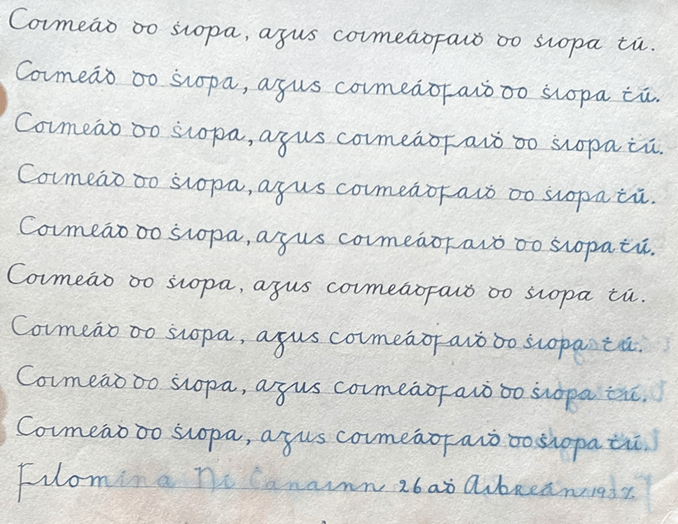 Coiméad do ṡiopa, agus coiméadfaiḋ do ṡiopa tú.
Coiméad do ṡiopa, agus coiméadfaiḋ do ṡiopa tú.
Coiméad do ṡiopa, agus coiméadfaiḋ do ṡiopa tú.
Coiméad do ṡiopa, agus coiméadfaiḋ do ṡiopa tú.
Coiméad do ṡiopa, agus coiméadfaiḋ do ṡiopa tú.
Coiméad do ṡiopa, agus coiméadfaiḋ do ṡiopa tú.
Coiméad do ṡiopa, agus coiméadfaiḋ do ṡiopa tú.
Coiméad do ṡiopa, agus coiméadfaiḋ do ṡiopa tú.
Coiméad do ṡiopa, agus coiméadfaiḋ do ṡiopa tú.
Filomina Ní Canainn 26aḋ Aibreán